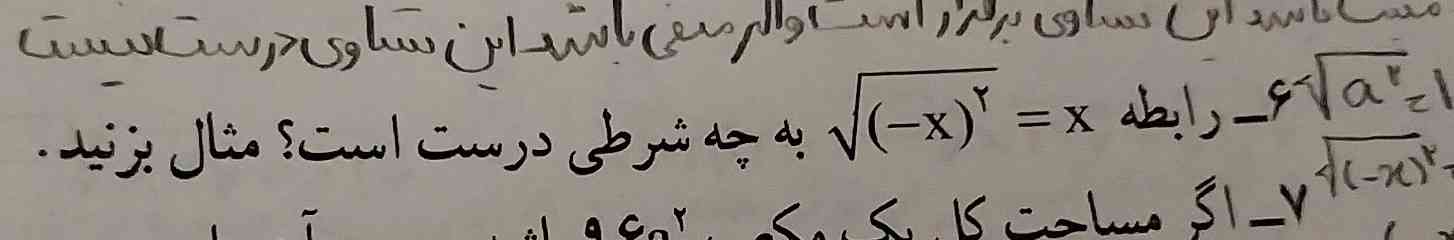 باشد این تساوی برقرار است و اگر منفی باشد این تساوی درست نیست
۶_ رابطه √(−x)² = x به چه شرطی درست است؟ مثال بزنید.
√a² =
√(−x)²
۷_ اگر مساحت کل یک